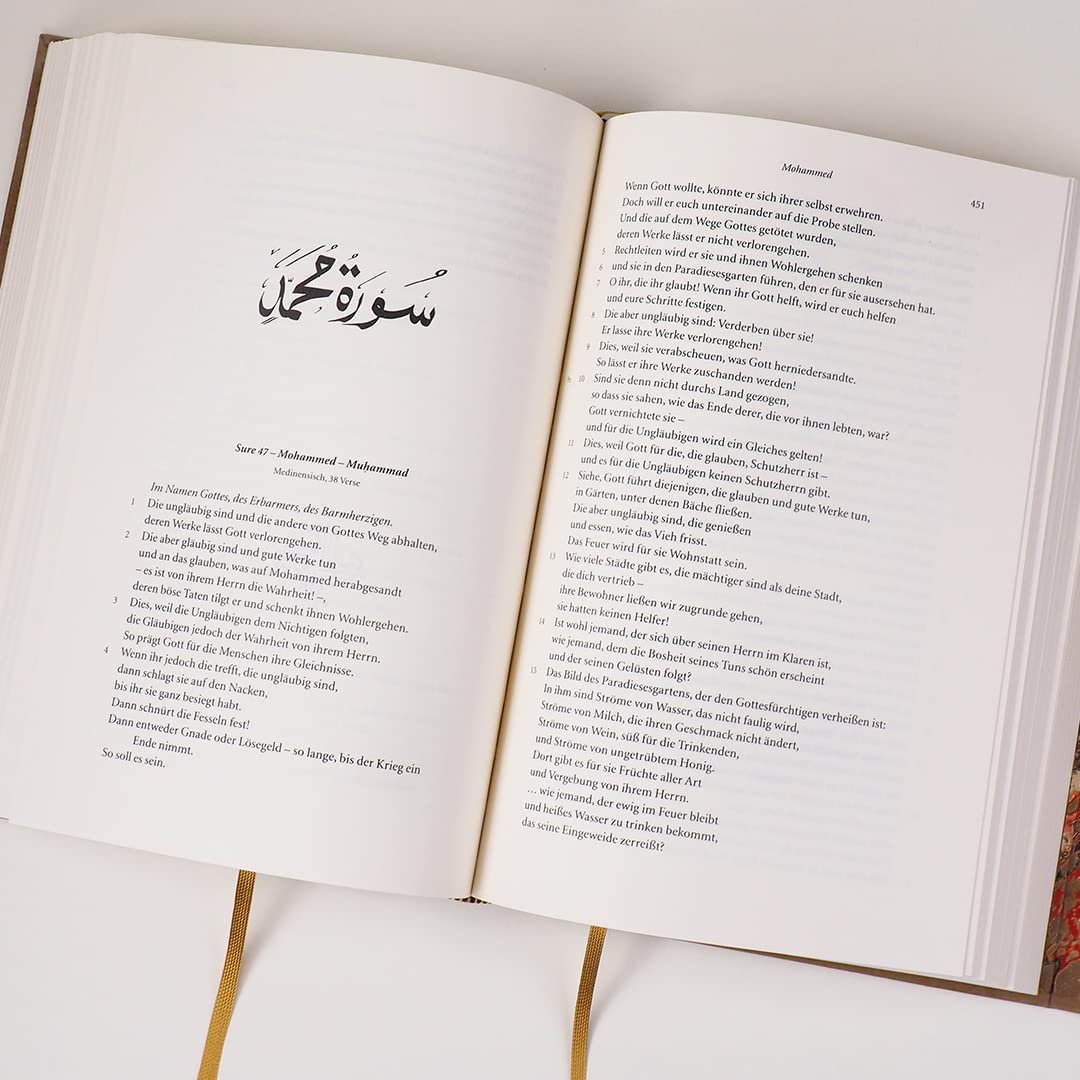 سُورَةُ مُحَمَّدٍ
Sure 47 – Mohammed – Muḥammad
Medinensisch, 38 Verse
Im Namen Gottes, des Erbarmers, des Barmherzigen.
1 Die ungläubig sind und die andere von Gottes Weg abhalten,
deren Werke lässt Gott verlorengehen.
2 Die aber gläubig sind und gute Werke tun
und an das glauben, was auf Mohammed herabgesandt
– es ist von ihrem Herrn die Wahrheit! –,
deren böse Taten tilgt er und schenkt ihnen Wohlergehen.
3 Dies, weil die Ungläubigen dem Nichtigen folgten,
die Gläubigen jedoch der Wahrheit von ihrem Herrn.
So prägt Gott für die Menschen ihre Gleichnisse.
4 Wenn ihr jedoch die trefft, die ungläubig sind,
dann schlagt sie auf den Nacken,
bis ihr sie ganz besiegt habt.
Dann schnürt die Fesseln fest!
Dann entweder Gnade oder Lösegeld – so lange, bis der Krieg ein
Ende nimmt.
So soll es sein.
Mohammed
451
Wenn Gott wollte, könnte er sich ihrer selbst erwehren.
Doch will er euch untereinander auf die Probe stellen.
Und die auf dem Wege Gottes getötet wurden,
deren Werke lässt er nicht verlorengehen.
5 Rechtleiten wird er sie und ihnen Wohlergehen schenken
6 und sie in den Paradiesesgarten führen, den er für sie ausersehen hat.
7 O ihr, die ihr glaubt! Wenn ihr Gott helft, wird er euch helfen
und eure Schritte festigen.
8 Die aber ungläubig sind: Verderben über sie!
Er lasse ihre Werke verlorengehen!
9 Dies, weil sie verabscheuen, was Gott herniedersandte.
So lässt er ihre Werke zuschanden werden!
10 Sind sie denn nicht durchs Land gezogen,
so dass sie sahen, wie das Ende derer, die vor ihnen lebten, war?
Gott vernichtete sie –
und für die Ungläubigen wird ein Gleiches gelten!
11 Dies, weil Gott für die, die glauben, Schutzherr ist –
und es für die Ungläubigen keinen Schutzherrn gibt.
12 Siehe, Gott führt diejenigen, die glauben und gute Werke tun,
in Gärten, unter denen Bäche fließen.
Die aber ungläubig sind, die genießen
und essen, wie das Vieh frisst.
Das Feuer wird für sie Wohnstatt sein.
13 Wie viele Städte gibt es, die mächtiger sind als deine Stadt,
die dich vertrieb –
ihre Bewohner ließen wir zugrunde gehen,
sie hatten keinen Helfer!
14 Ist wohl jemand, der sich über seinen Herrn im Klaren ist,
wie jemand, dem die Bosheit seines Tuns schön erscheint
und der seinen Gelüsten folgt?
15 Das Bild des Paradiesesgartens, der den Gottesfürchtigen verheißen ist:
In ihm sind Ströme von Wasser, das nicht faulig wird,
Ströme von Milch, die ihren Geschmack nicht ändert,
Ströme von Wein, süß für die Trinkenden,
und Ströme von ungetrübtem Honig.
Dort gibt es für sie Früchte aller Art
und Vergebung von ihrem Herrn.
… wie jemand, der ewig im Feuer bleibt
und heißes Wasser zu trinken bekommt,
das seine Eingeweide zerreißt?